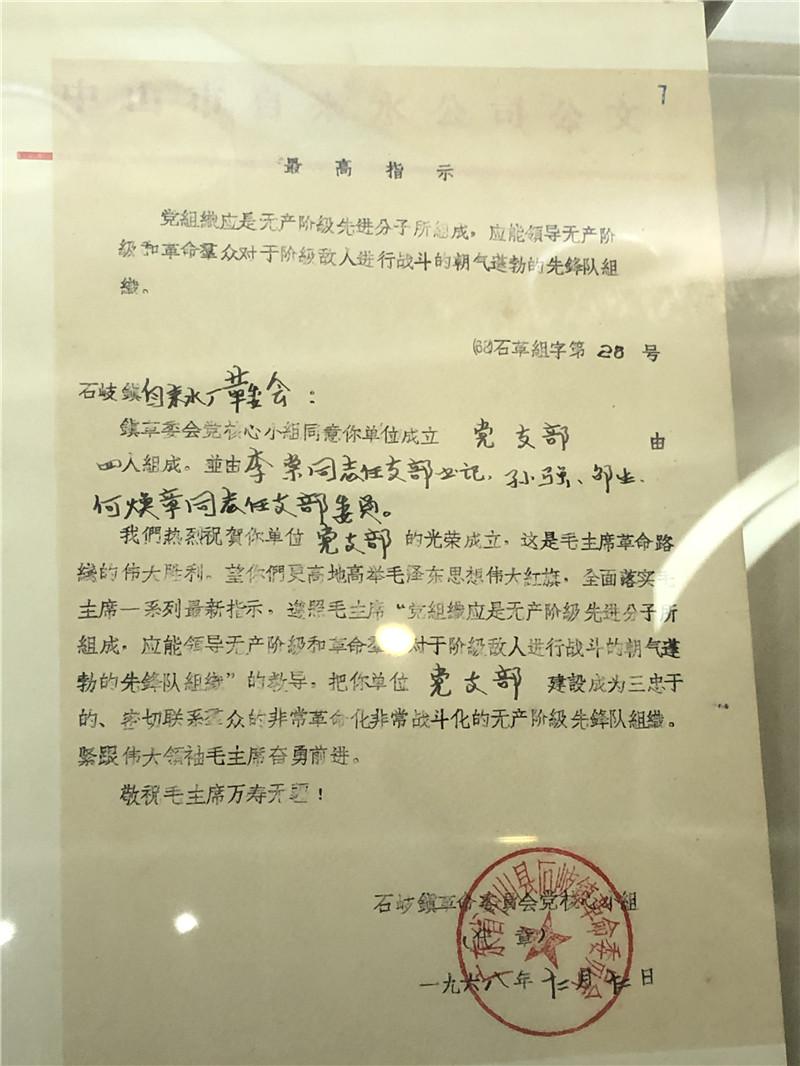 7
最高指示
党组織应是无产阶級先进分子所組成，应能領导无产阶
級和革命羣众对于阶級敌人进行战斗的朝气蓬勃的先鋒队組
織。
(68)石革組字第 28 号
石岐鎮自来水厂革委会：
鎮革委会党核心小組同意你单位成立 党支部 由
四人組成。並由李荣同志任支部书记，孙强、
何焕章同志任支部委员。
我們热烈祝賀你单位 党支部 的光荣成立，这是毛主席革命路
綫的伟大胜利。望你們更高地高举毛泽东思想伟大紅旗，全面落实毛
主席一系列最新指示，遵照毛主席“党組織应是无产阶級先进分子所
組成，应能領导无产阶級和革命羣 对于阶級敌人进行战斗的朝气蓬
勃的先鋒队組織”的教导，把你单位 党支部 建設成为三忠于
的、密切联系羣众的非常革命化非常战斗化的无产阶級先鋒队組織。
紧跟伟大領袖毛主席奋勇前进。
敬祝毛主席万寿无疆！
石岐鎮革命委員会党核心小組
(代章)
一九六八年十二月 日
广东省中山县石岐鎮革命委员会